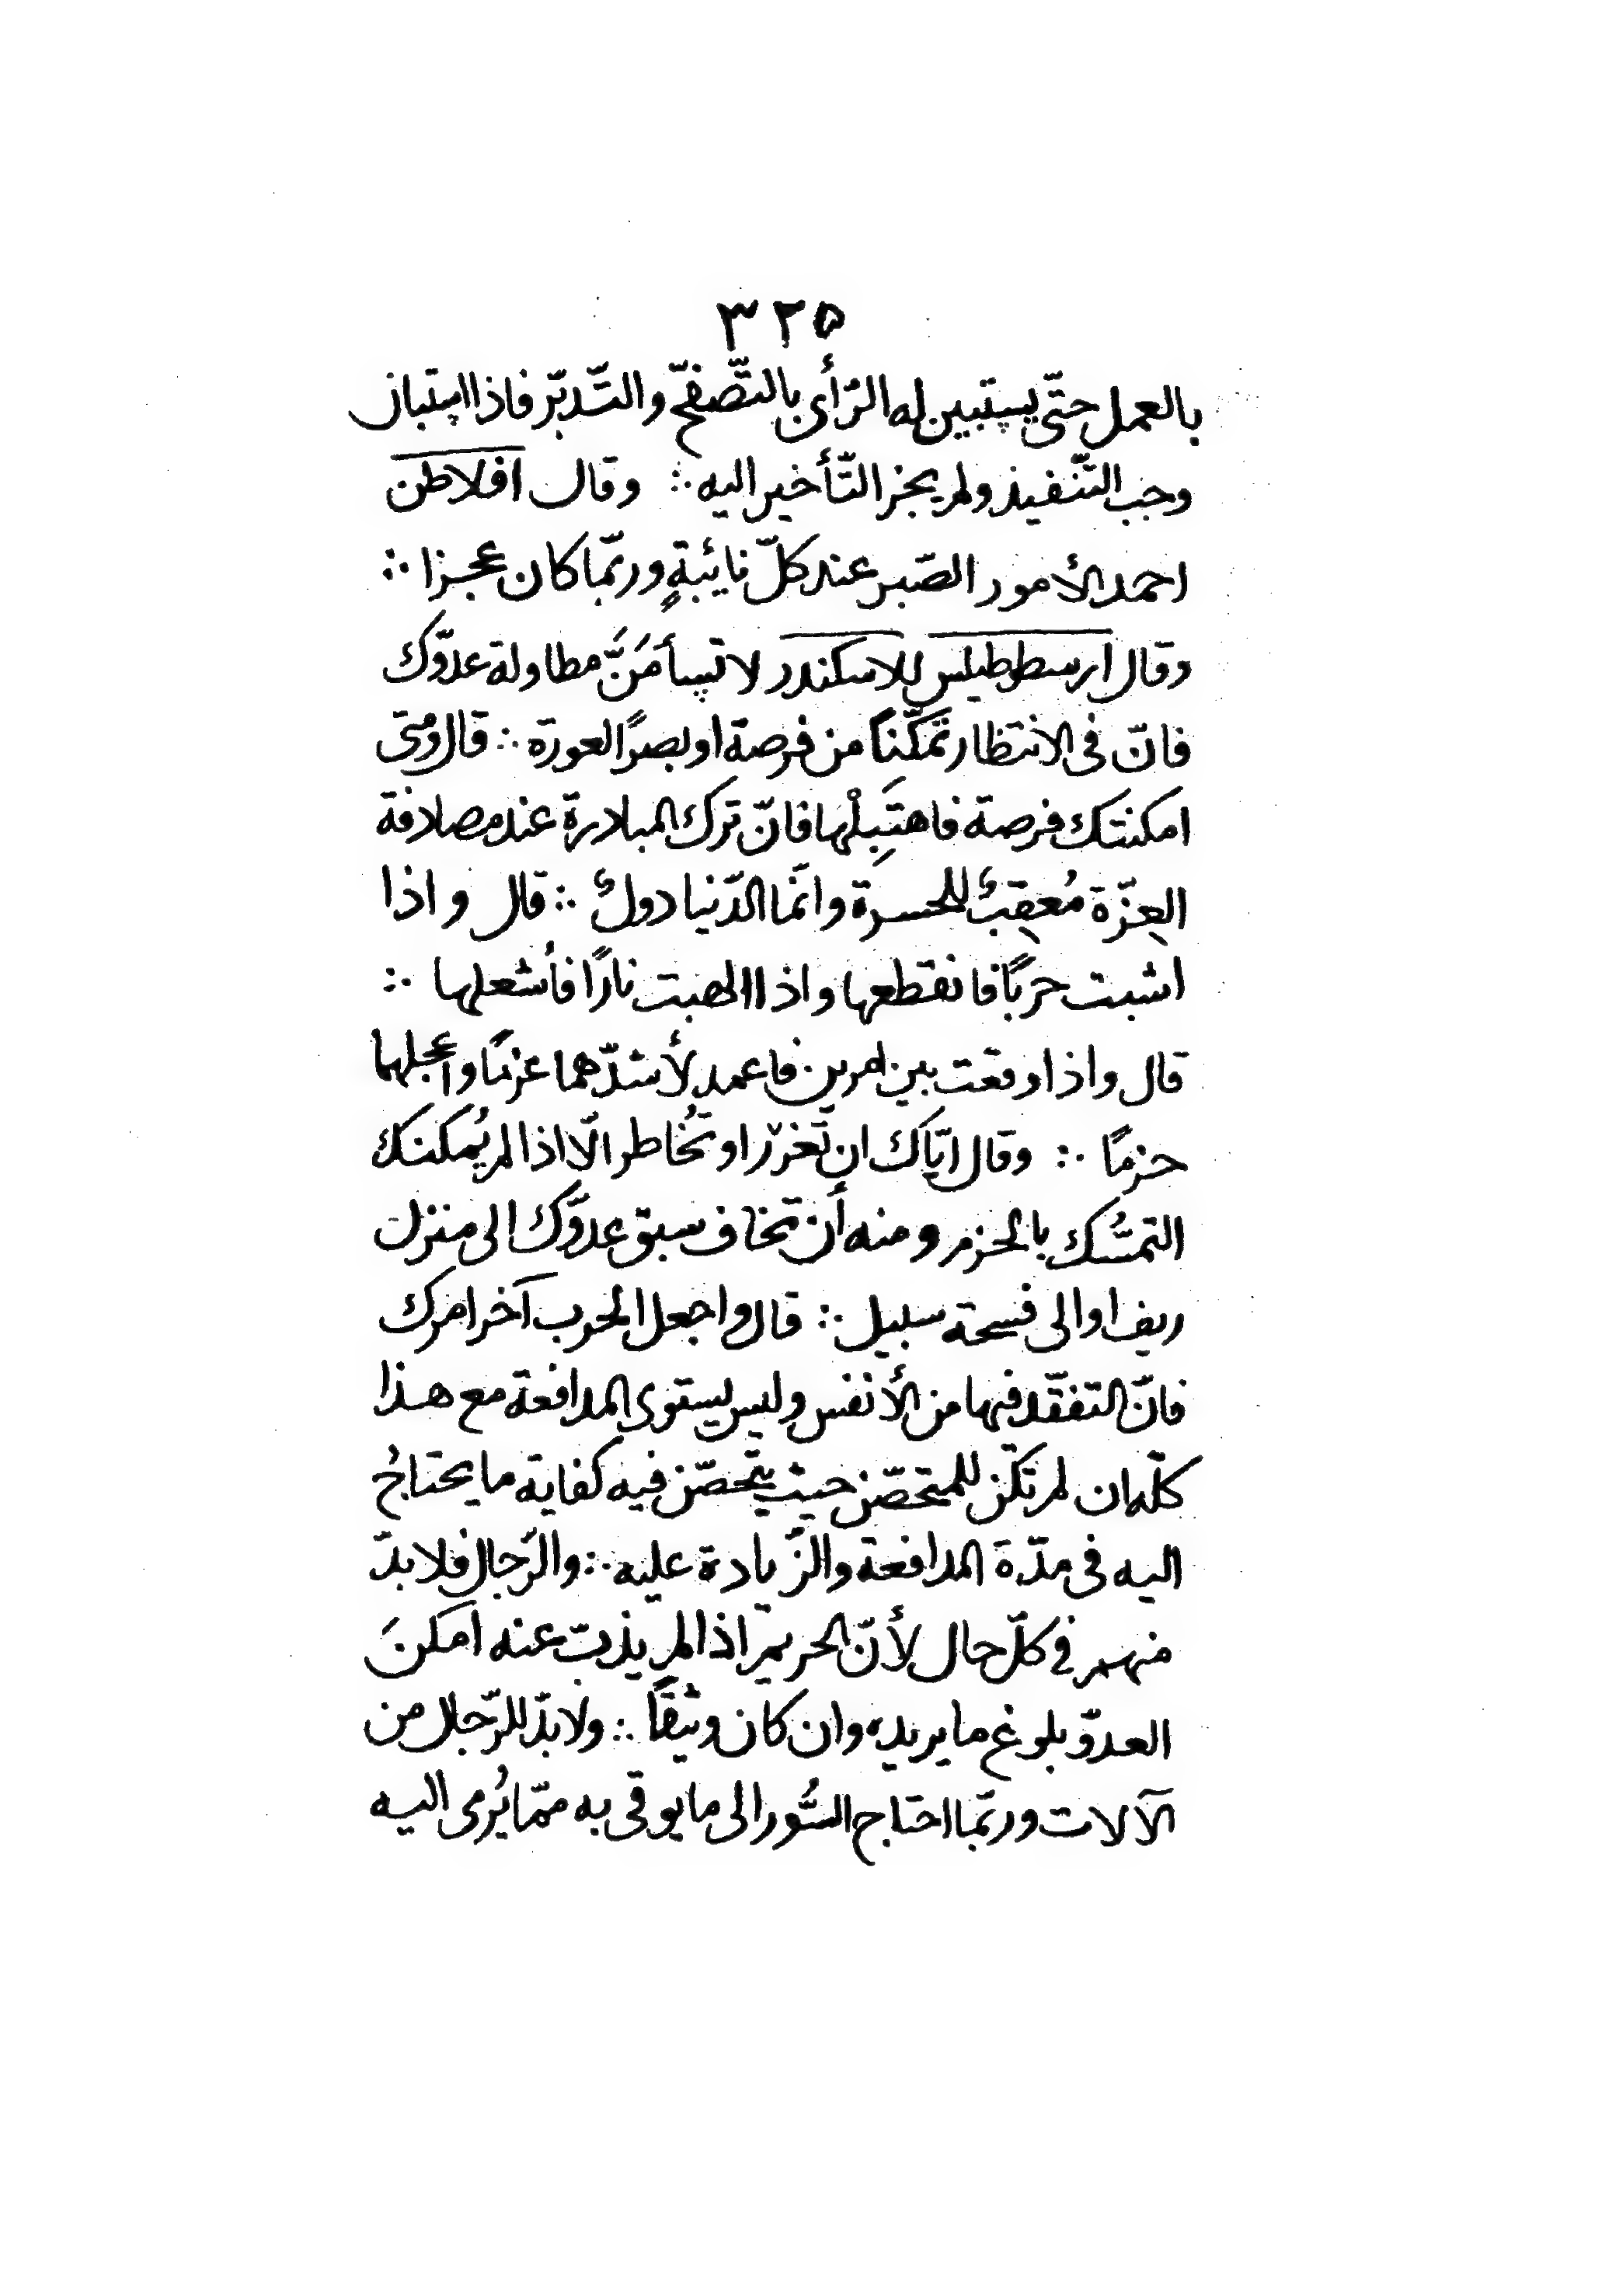 ٣٢٥
بالعمل حتّى يستبين له الرّأى بالتّصفّح والتّدبّر فاذا استبان
وجب التّنفيذ ولم يجز التّأخير اليه ∴ وقال افلاطن
احمد الأمور الصّبر عند كلّ نايئبةٍ وربّما كان عجزا ∴
وقال ارسطوطيلس للاسكندر لا تسأمَنَّ مطاولة عدوّك
فانّ فى الانتظار تمكّنًا من فرصة او بصرًا لعورة ∴ قال ومتى
امكنتك فرصة فاهتَبِلْها فانّ ترك المبادرة عند مصادفة
العِزّة مُعقِبٌ للحسرة وانّما الدّنيا دولٌ ∴ قال واذا
اشبت حربًا فانقطعها واذا الهبت نارًا فأشعلها ∴
قال واذا وقعت بين امرين فاعمد لأشدّهما عزمًا واعجلهما
حزمًا ∴ وقال ايّاك ان تغرّر او تُخاطر الّا اذا لم يُمكنك
التمسُّك بالحزم ومنه أن تخاف سبق عدوّك الى منزل
ريف او الى فسحة سبيل ∴ قال واجعل الحرب آخر امرك
فانّ التفقّد فيها من الأنفس وليس يستوى المدافعة مع هذا
كلّه ان لم تكن للمتحصّن حيث يتحصّن فيه كفاية ما يحتاجُ
اليه فى مدّة المدافعة والزّيادة عليه ∴ والرّجال فلا بدّ
منهم فى كلّ حال لأنّ الحريم اذا لم يذبّ عنه امكنَ
العدوّ بلوغ ما يريده وان كان وثيقًا ∴ ولا بدّ للرّجال من
الآلات وربّما احتاج السُّور الى ما يوقى به ممّا يُرمى اليه